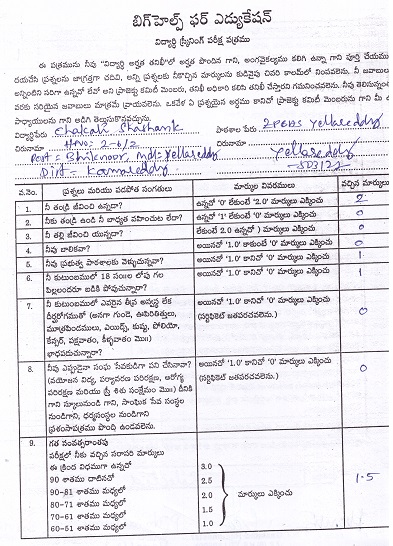 బిగ్‌హెల్ప్ ఫర్ ఎడ్యుకేషన్
విద్యార్థి స్క్రీనింగ్ పరీక్ష పత్రము
ఈ పత్రమును నీవు "విద్యార్థి అర్హత తనిఖీ"లో అర్హత పొందిన గాని, అంగవైకల్యము కలిగి ఉన్నా గాని పూర్తి చేయుము
దయచేసి ప్రశ్నలను జాగ్రత్తగా చదివి, అన్ని ప్రశ్నలకు నీకొచ్చిన మార్కులను కుడివైపు చివరి కాలమ్‌లో నింపవలెను. నీ జవాబులు
అన్నింటిని సరిగా ఉన్నదో లేదో అని ప్రాజెక్టు కమిటీ మెంబరు, తనిఖీ అధికారి కలిసి తనిఖీ చేస్తారని గమనించవలెను. నీవు తెలిసినంత
వరకు సరియైన జవాబులు మాత్రమే వ్రాయవలెను. ఒకవేళ ఏ ప్రశ్నయైన అర్థము కానిచో ప్రాజెక్టు కమిటీ మెంబరును గాని మీ ఉ
పాధ్యాయులను గాని అడిగి తెల్సుకొనవచ్చును.
విద్యార్థిపేరు Chakali Shashank పాఠశాల పేరు 2PGDS Yellareddy
చిరునామా H.No: 2-6/2 చిరునామా Yellareddy
Post= Bhiknoor, Md=Yellareddy -503122
Dist= Kamareddy
వ.నెం. ప్రశ్నలు మరియు పడపోత సంగతులు మార్కుల వివరములు వచ్చిన మార్కులు
1. నీ తండ్రి జీవించి ఉన్నాడా? ఉన్నచో '0' లేకుంటే '2.0' మార్కులు ఎక్కించు 2
2. నీకు తండ్రి ఉండి నీ బాధ్యత వహించుట లేదా? ఉన్నచో '1' లేకుంటే '0' మార్కులు ఎక్కించు 0
3. నీ తల్లి జీవించి యున్నదా? లేకుంటే 2.0 ఉన్నచో 0 మార్కులు ఎక్కించు 0
4. నీవు బాలికవా? అయినచో '1.0' కాకుంటే '0' మార్కులు ఎక్కించు 0
5. నీవు ప్రభుత్వ పాఠశాలకు వెళ్ళుచున్నావా? అయినచో '1.0' కానిచో '0' మార్కులు ఎక్కించు 1
6. నీ కుటుంబములో 18 సం॥ల లోపు గల అయినచో '1.0' కానిచో '0' మార్కులు ఎక్కించు 1
పిల్లలందరూ బడికి పోవుచున్నారా?
7. నీ కుటుంబములో ఎవరైన తీవ్ర అస్వస్థ లేక అయినచో '1.0' కానిచో '0' మార్కులు ఎక్కించు 0
దీర్ఘరోగముతో (అనగా గుండె, ఊపిరితిత్తులు, (సర్టిఫికెట్ జతపరచవలెను.)
మూత్రపిండములు, ఎయిడ్స్, కుష్ఠు, పోలియో,
కేన్సర్, పక్షవాతం, కీళ్ళవాతం మొ॥)
బాధపడుచున్నారా?
8. నీవు ఎప్పుడైనా సంఘ సేవకుడిగా పని చేసినావా? అయినచో '1.0' కానిచో '0' మార్కులు ఎక్కించు 0
(వయోజన విద్య, పర్యావరణ పరిరక్షణ, ఆరోగ్య (సర్టిఫికెట్ జతపరచవలెను.)
పరిరక్షణ మరియు స్త్రీ శిశు సంక్షేమం మొ॥) దీనికి
గాని స్కూలునుండి గాని, సాంఘిక సేవ సంస్థల
నుండిగాని, ధర్మసంస్థల నుండిగాని
ప్రశంసాపత్రము పొంది ఉండవలెను.
9. గత సంవత్సరాంతపు
పరీక్షలో నీకు వచ్చిన సరాసరి మార్కులు
ఈ క్రింద విధముగా ఉన్నచో 3.0
90 శాతము దాటినచో 2.5
90-81 శాతము మధ్యలో 2.0 మార్కులు ఎక్కించు 1.5
80-71 శాతము మధ్యలో 1.5
70-61 శాతము మధ్యలో 1.0
60-51 శాతము మధ్యలో